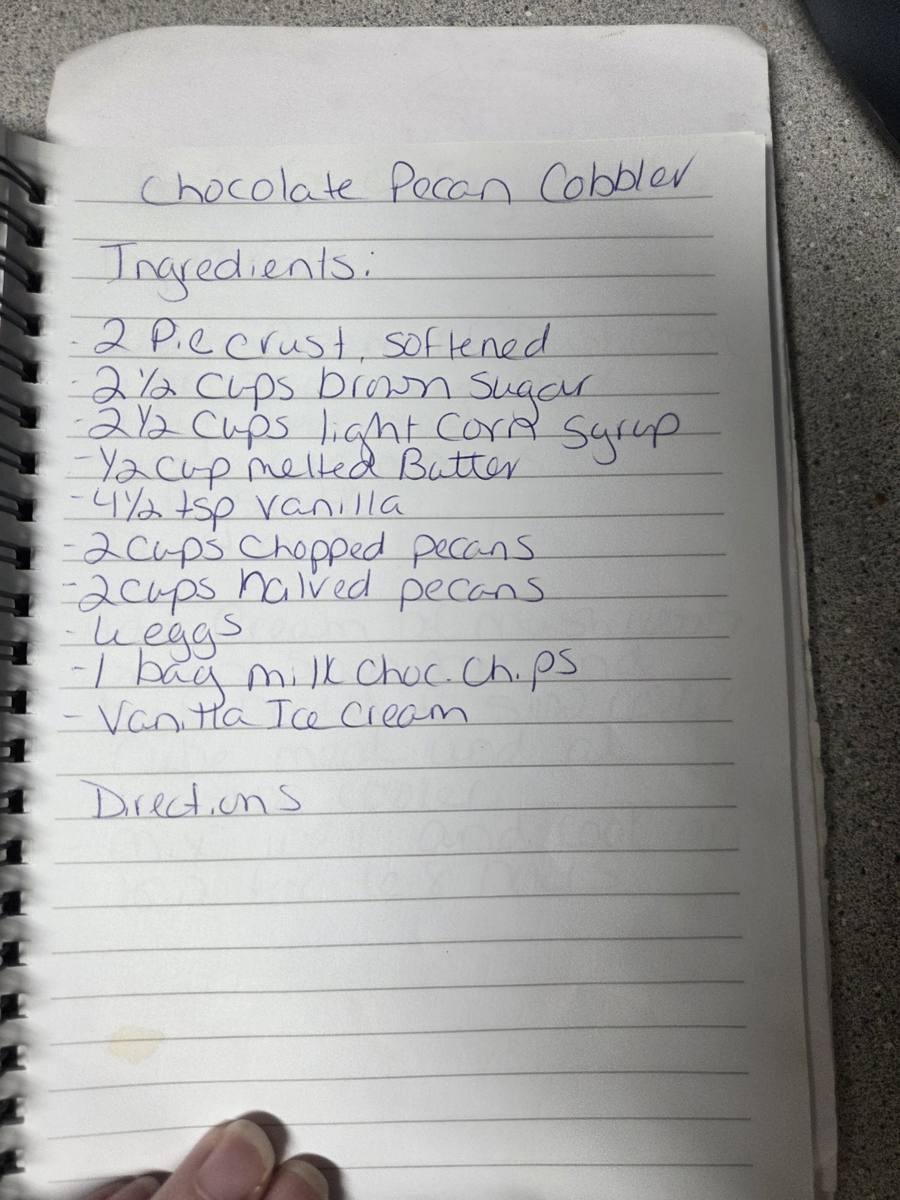 Chocolate Pecan Cobbler
Ingredients:
- 2 Pie crust, softened
- 2 1/2 Cups brown Sugar
- 2 1/2 Cups light Corn Syrup
- 1/2 cup melted Butter
- 4 1/2 tsp vanilla
- 2 cups Chopped pecans
- 2 cups halved pecans
- 6 eggs
- 1 bag milk Choc. Chips
- Vanilla Ice Cream
Directions